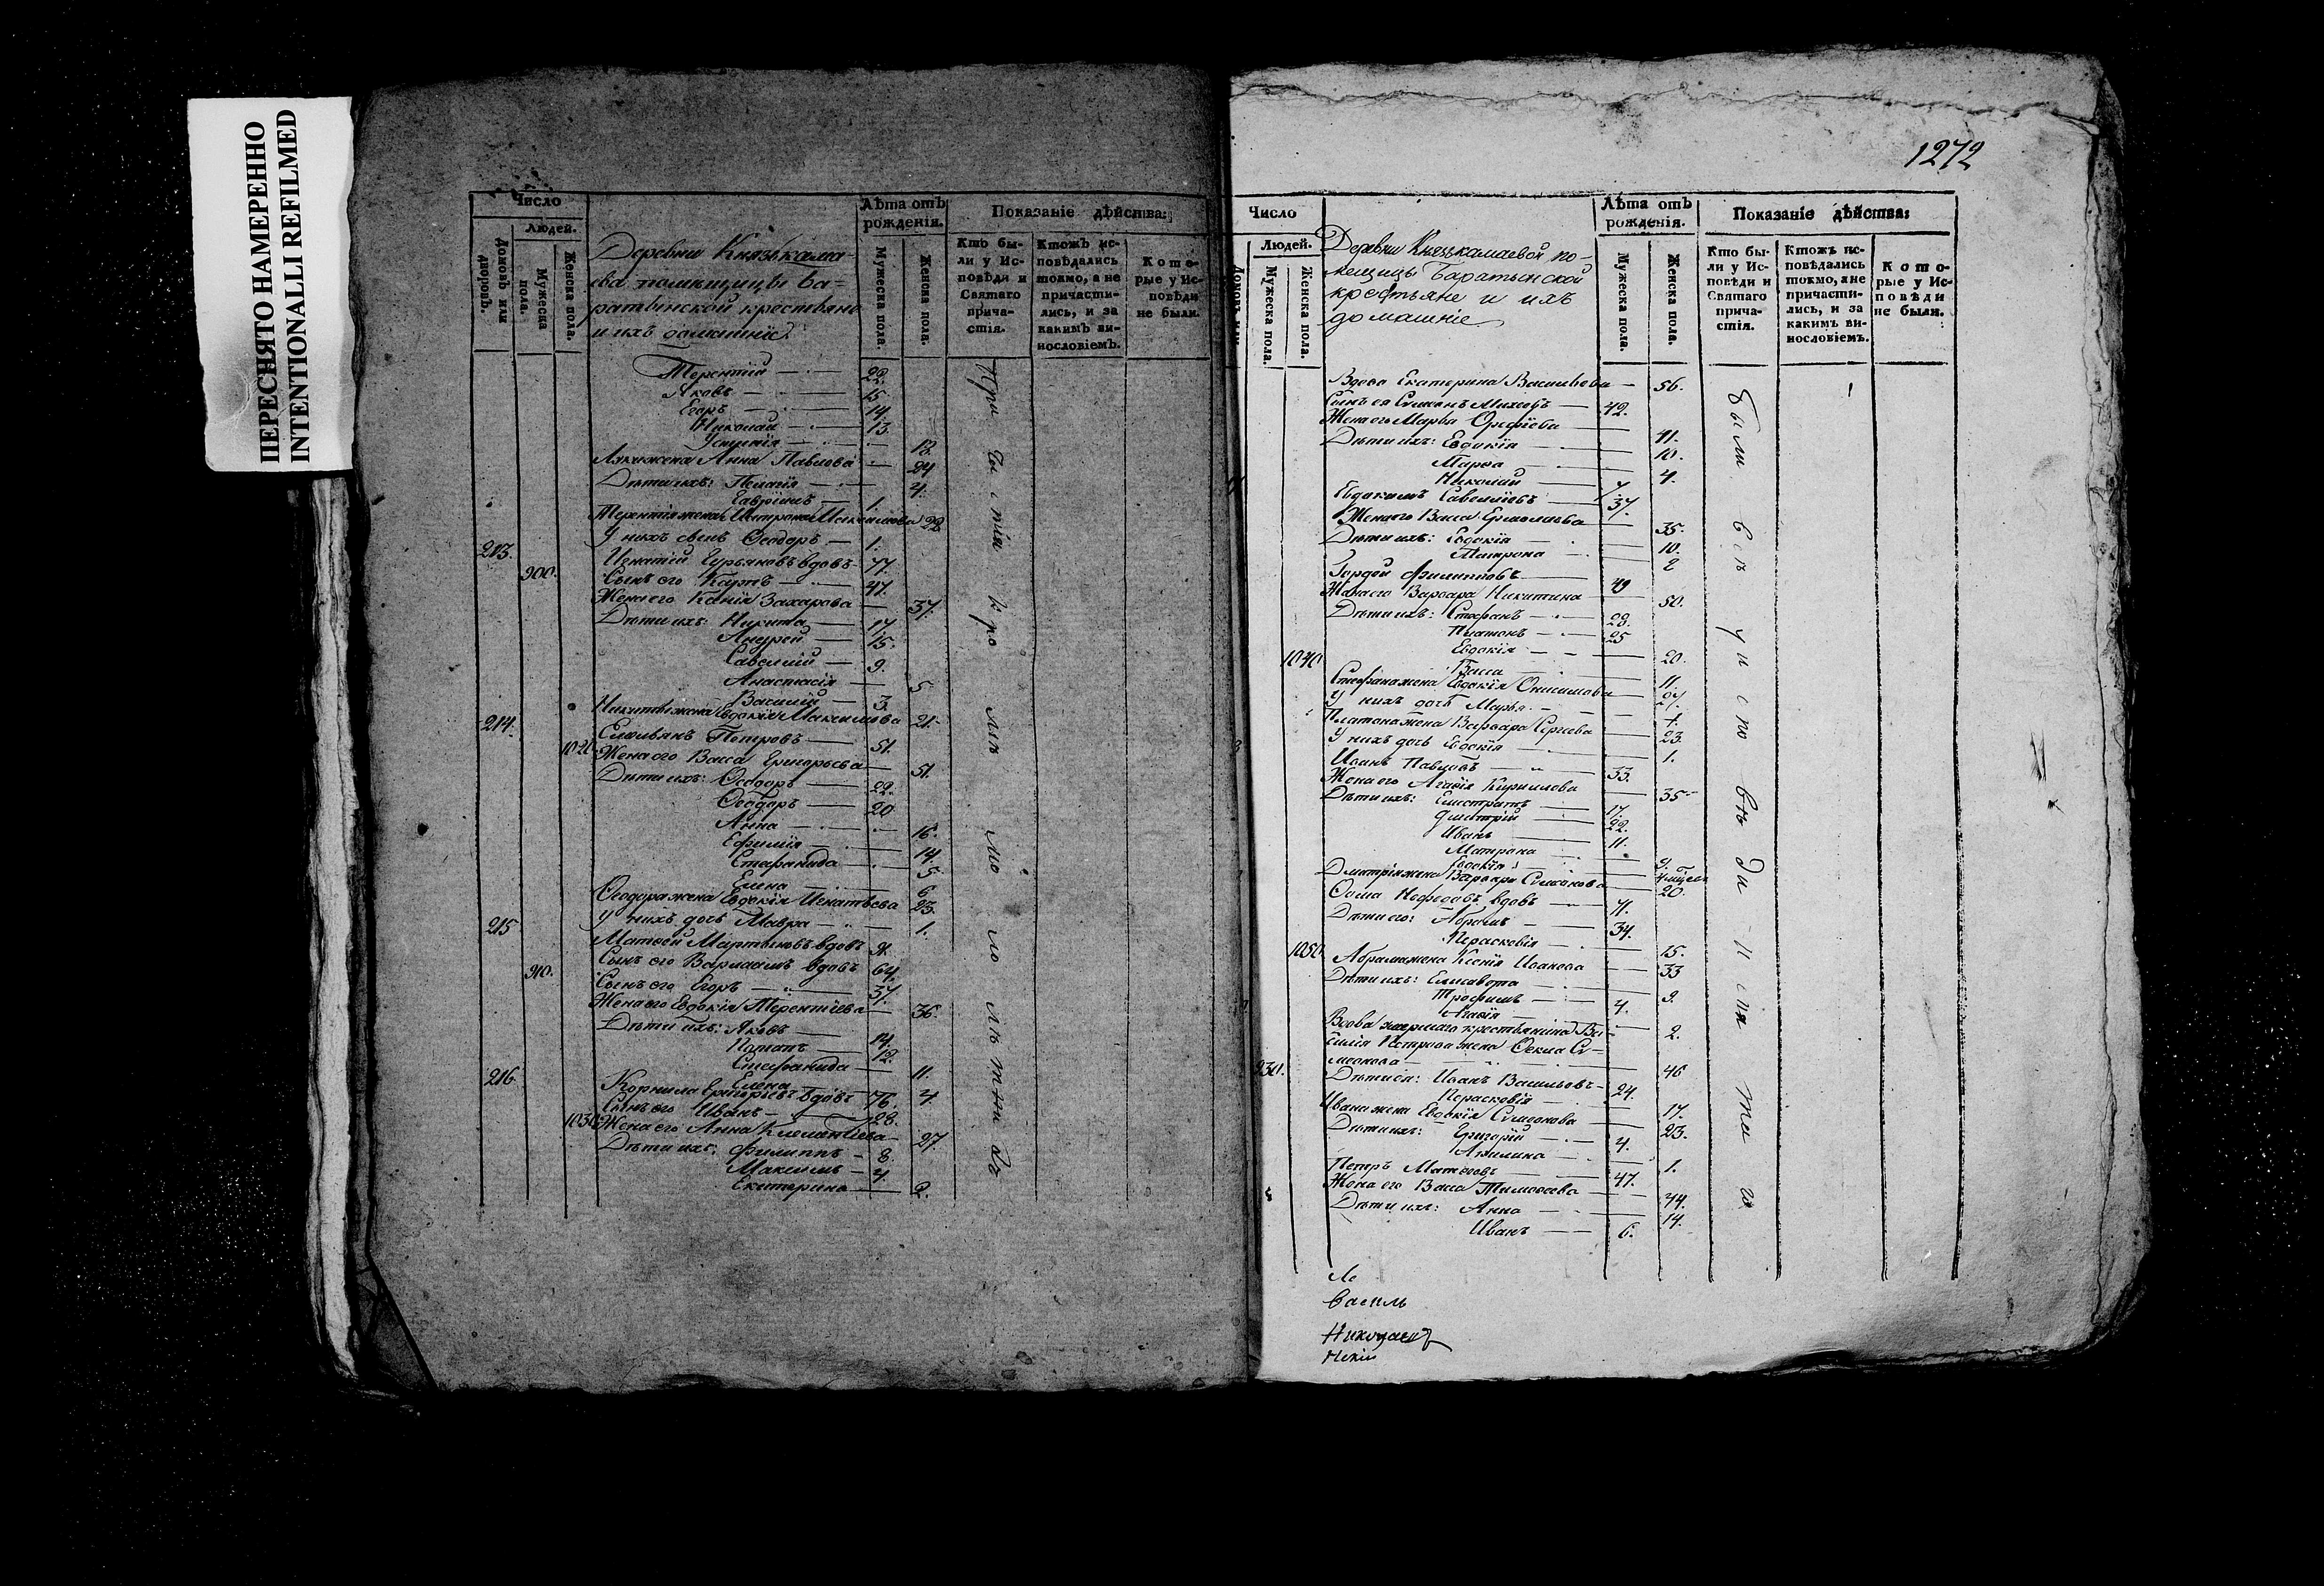 ПЕРЕСНЯТО НАМЕРЕННО
INTENTIONALLI REFILMED
Число
Людей.
Домовъ или дворовъ.
Мужеска пола.
Женска пола.
Деревни Князькама-
ева помѣщицы Ба-
ратынской крестьяне
и ихъ домашніе
Лѣта отъ
рожденія.
Мужеска пола.
Женска пола.
Показаніе дѣйства:
Кто бы-
ли у Ис-
повѣди и
Святаго
прича-
стія.
Ктожъ ис-
повѣдались
токмо, а не
причасти-
лись, и за
какимъ ви-
нословіемъ.
Кото-
рые у Ис-
повѣди
не были.
Терентій 22.
Яковъ 15.
Егоръ 14.
Николай 13.
Устинія 12.
жена Анна Павлова 24
Дѣти ихъ: Пелагія 4.
Гавріилъ 1.
Терентія жена Матрона Максимова 22.
У нихъ сынъ Ѳеодоръ 1.
213. Игнатій Гурьяновъ вдовъ 77.
900. Сынъ его Карпъ 41.
Жена его Ксенія Захарова 37.
Дѣти ихъ: Никита 17.
Андрей 15.
Савелій 9.
Анастасія 5
Василій 3.
Никиты жена Евдокія Максимова 21.
214. Емельянъ Петровъ 51.
1020. Жена его Васса Григорьева 51.
Дѣти ихъ: Ѳеодоръ 22.
Ѳеодоръ 20
Анна 16.
Ефимія 14.
Стефанида 5
Елена 6
Ѳеодора жена Евдокія Игнатьева 23.
У нихъ дочь Мавра 1.
215 Матвей Мартыновъ вдовъ 91.
910. Сынъ его Варлаамъ вдовъ 64.
Сынъ его Егоръ 37.
Жена его Евдокія Терентіева 36.
Дѣти ихъ: Яковъ 14.
Потапъ 12.
Стефанида 11.
Елена 4.
216. Корнила Григорьевъ вдовъ 76.
Сынъ его Иванъ 28.
1030 Жена его Анна Клементіева 27
Дѣти ихъ: Филиппъ 8.
Максимъ 4.
Екатерина 2.
1272
Число
Людей.
Мужеска пола.
Женска пола.
Деревни Князькамаевой по-
мещицы Баратынской
крестьяне и ихъ
домашніе
Лѣта отъ
рожденія.
Мужеска пола.
Женска пола.
Показаніе дѣйства:
Кто бы-
ли у Ис-
повѣди и
Святаго
прича-
стія.
Ктожъ ис-
повѣдались
токмо, а не
причасти-
лись, и за
какимъ ви-
нословіемъ.
Кото-
рые у Ис-
повѣди
не были.
Вдова Екатерина Васильева 56.
Сынъ ея Симонъ Михеевъ 42.
Жена его Марѳа Орефіева 41.
Дѣти ихъ: Евдокія 10.
Марѳа 4.
Николай 7
Евдокимъ Савельевъ 37.
Жена его Васса Ермолаева 35.
Дѣти ихъ: Евдокія 10.
Матрона 2
Гордей Филипповъ 49
Жена его Варвара Никитина 50.
Дѣти ихъ: Стефанъ 28.
Платонъ 25
Евдокія 20.
1040. Васса 11.
Стефана жена Евдокія Онисимова 27.
У нихъ дочь Марья
Платона жена Варвара Сергеева 23.
У нихъ дочь Евдокія 1.
Иванъ Павловъ 33.
Жена его Агафія Кириллова 35
Дѣти ихъ: Елистратъ 17.
Дмитрій 22.
Иванъ 11.
Матрона 9.
Евдокія
Дмитрія жена Варвара Симонова 20.
Ѳома Нефедовъ вдовъ 71.
Дѣти его: Абрамъ 34.
Перасковія 15.
1050. Абрама жена Ксенія Иванова 33
Дѣти ихъ: Елисавета 9.
Трофимъ 4.
2.
Вдова умершаго крестьянина Ва-
силія Петрова жена Ѳекла Си-
меонова 46
Дѣти ея: Иванъ Васильевъ 24.
Перасковія 17.
Ивана жена Евдокія Симеонова 23.
Дѣти ихъ: Григорій 4.
Акилина 1.
Петръ Матвеевъ 47.
Жена его Васса Тимоѳеева 44.
Дѣти ихъ: Анна 14.
Иванъ 6.
были всѣ у исповѣди и святи
Ле
Василь